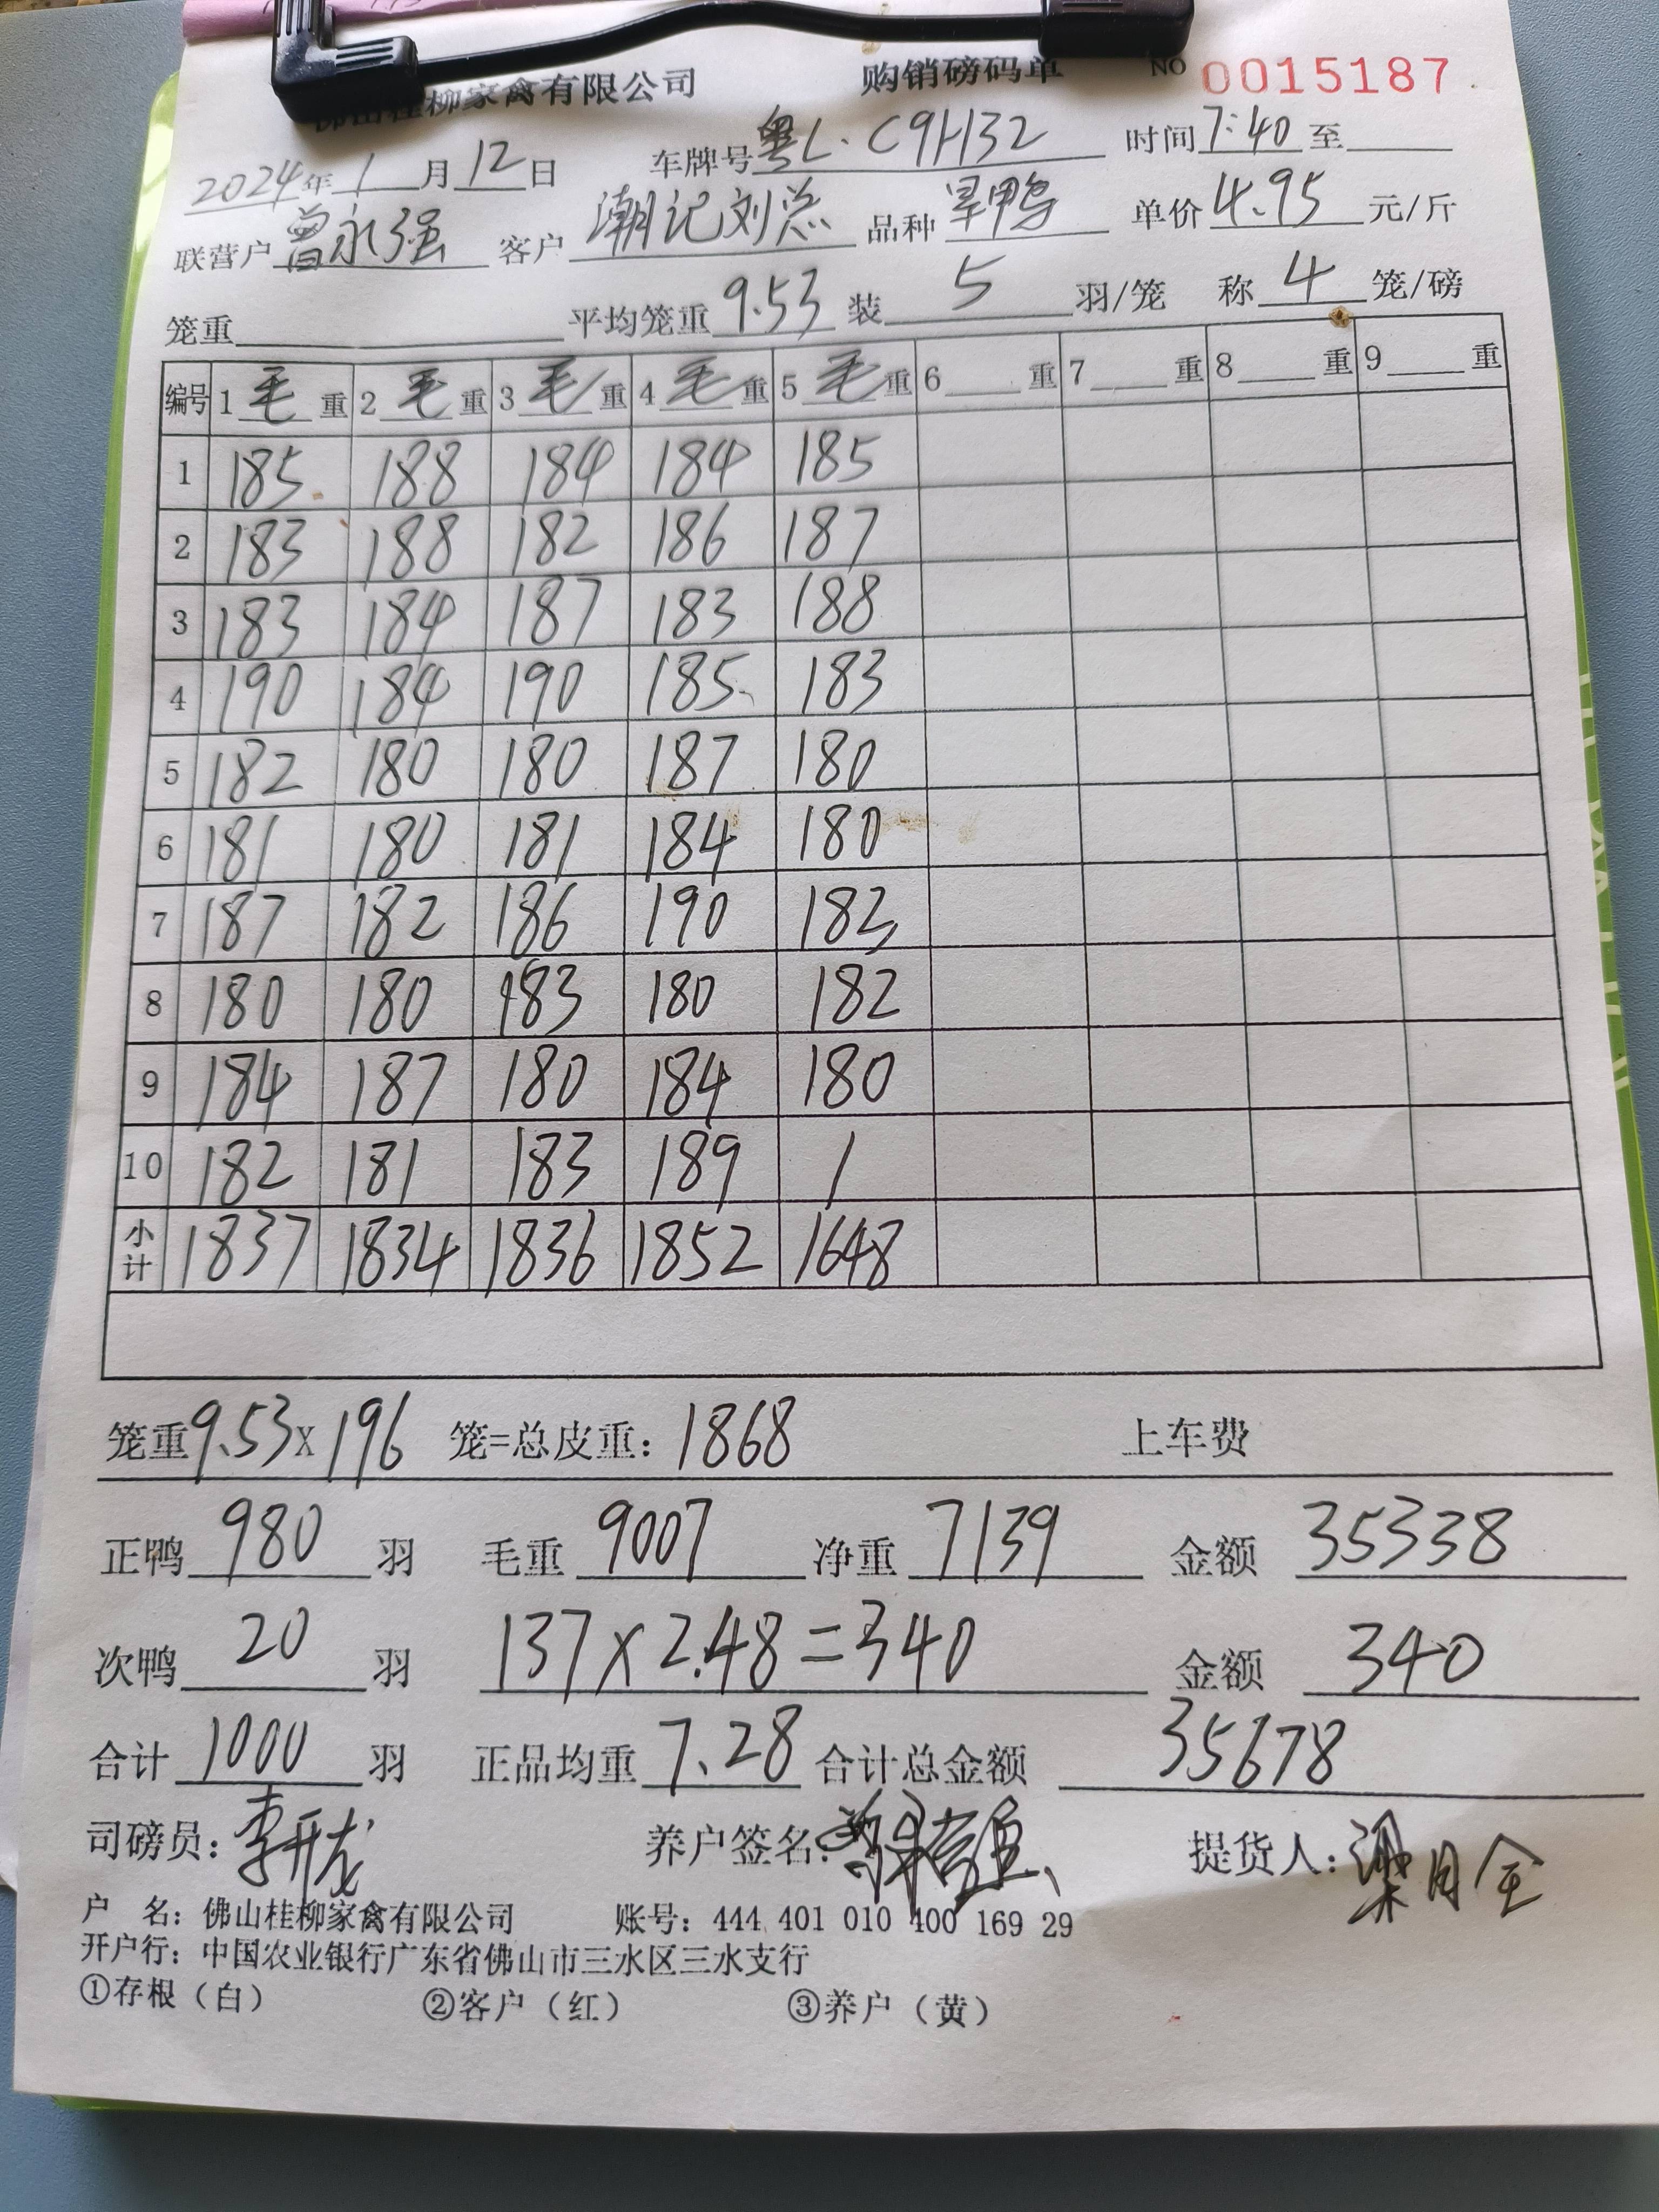 佛山桂柳家禽有限公司 购销磅码单 NO 0015187
2024年1月12日 车牌号粤L·C9H32 时间7:40至
联营户曾永强 客户潮记刘总 品种旱鸭 单价4.95元/斤
笼重 平均笼重9.53 装5羽/笼 称4笼/磅
编号 1毛重 2毛重 3毛重 4毛重 5毛重 6重 7重 8重 9重
1 185 188 184 184 185
2 183 188 182 186 187
3 183 184 187 183 188
4 190 184 190 185 183
5 182 180 180 187 180
6 181 180 181 184 180
7 187 182 186 190 183
8 180 180 183 180 182
9 184 187 180 184 180
10 182 181 183 189 /
小计 1837 1834 1836 1852 1648
笼重9.53x196笼=总皮重:1868 上车费
正鸭980羽 毛重9007 净重7139 金额35338
次鸭20羽 137×2.48=340 金额340
合计1000羽 正品均重7.28 合计总金额35678
司磅员:李开龙 养户签名: 提货人:梁月全
户 名:佛山桂柳家禽有限公司 账号:444 401 010 400 169 29
开户行:中国农业银行广东省佛山市三水区三水支行
①存根(白) ②客户(红) ③养户(黄)